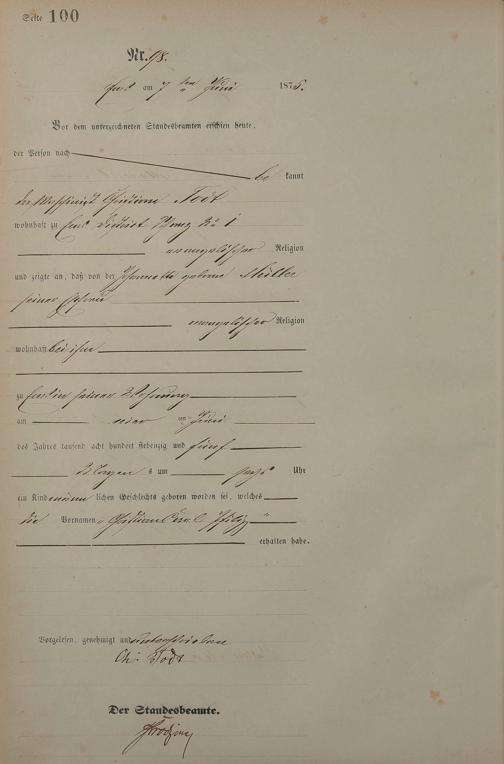 Seite 100
Nr. 98.
Ems am 7 ten Juni 1875.
Vor dem unterzeichneten Standesbeamten erschien heute,
der Person nach
be kannt
der Maschinist Christian Todt
wohnhaft zu Ems District No 1
evangelischer Religion
und zeigte an, daß von der geborene
seiner Ehefrau
evangelischer Religion
wohnhaft bei ihm
zu Ems in seiner Wohnung
am ten Juni
des Jahres tausend acht hundert siebenzig und fünf
Morgens um sechs Uhr
ein Kind männlichen Geschlechts geboren worden sei, welches
die Vornamen Christian Carl Philipp
erhalten habe.
Vorgelesen, genehmigt und unterschrieben
Ch: Todt
Der Standesbeamte.